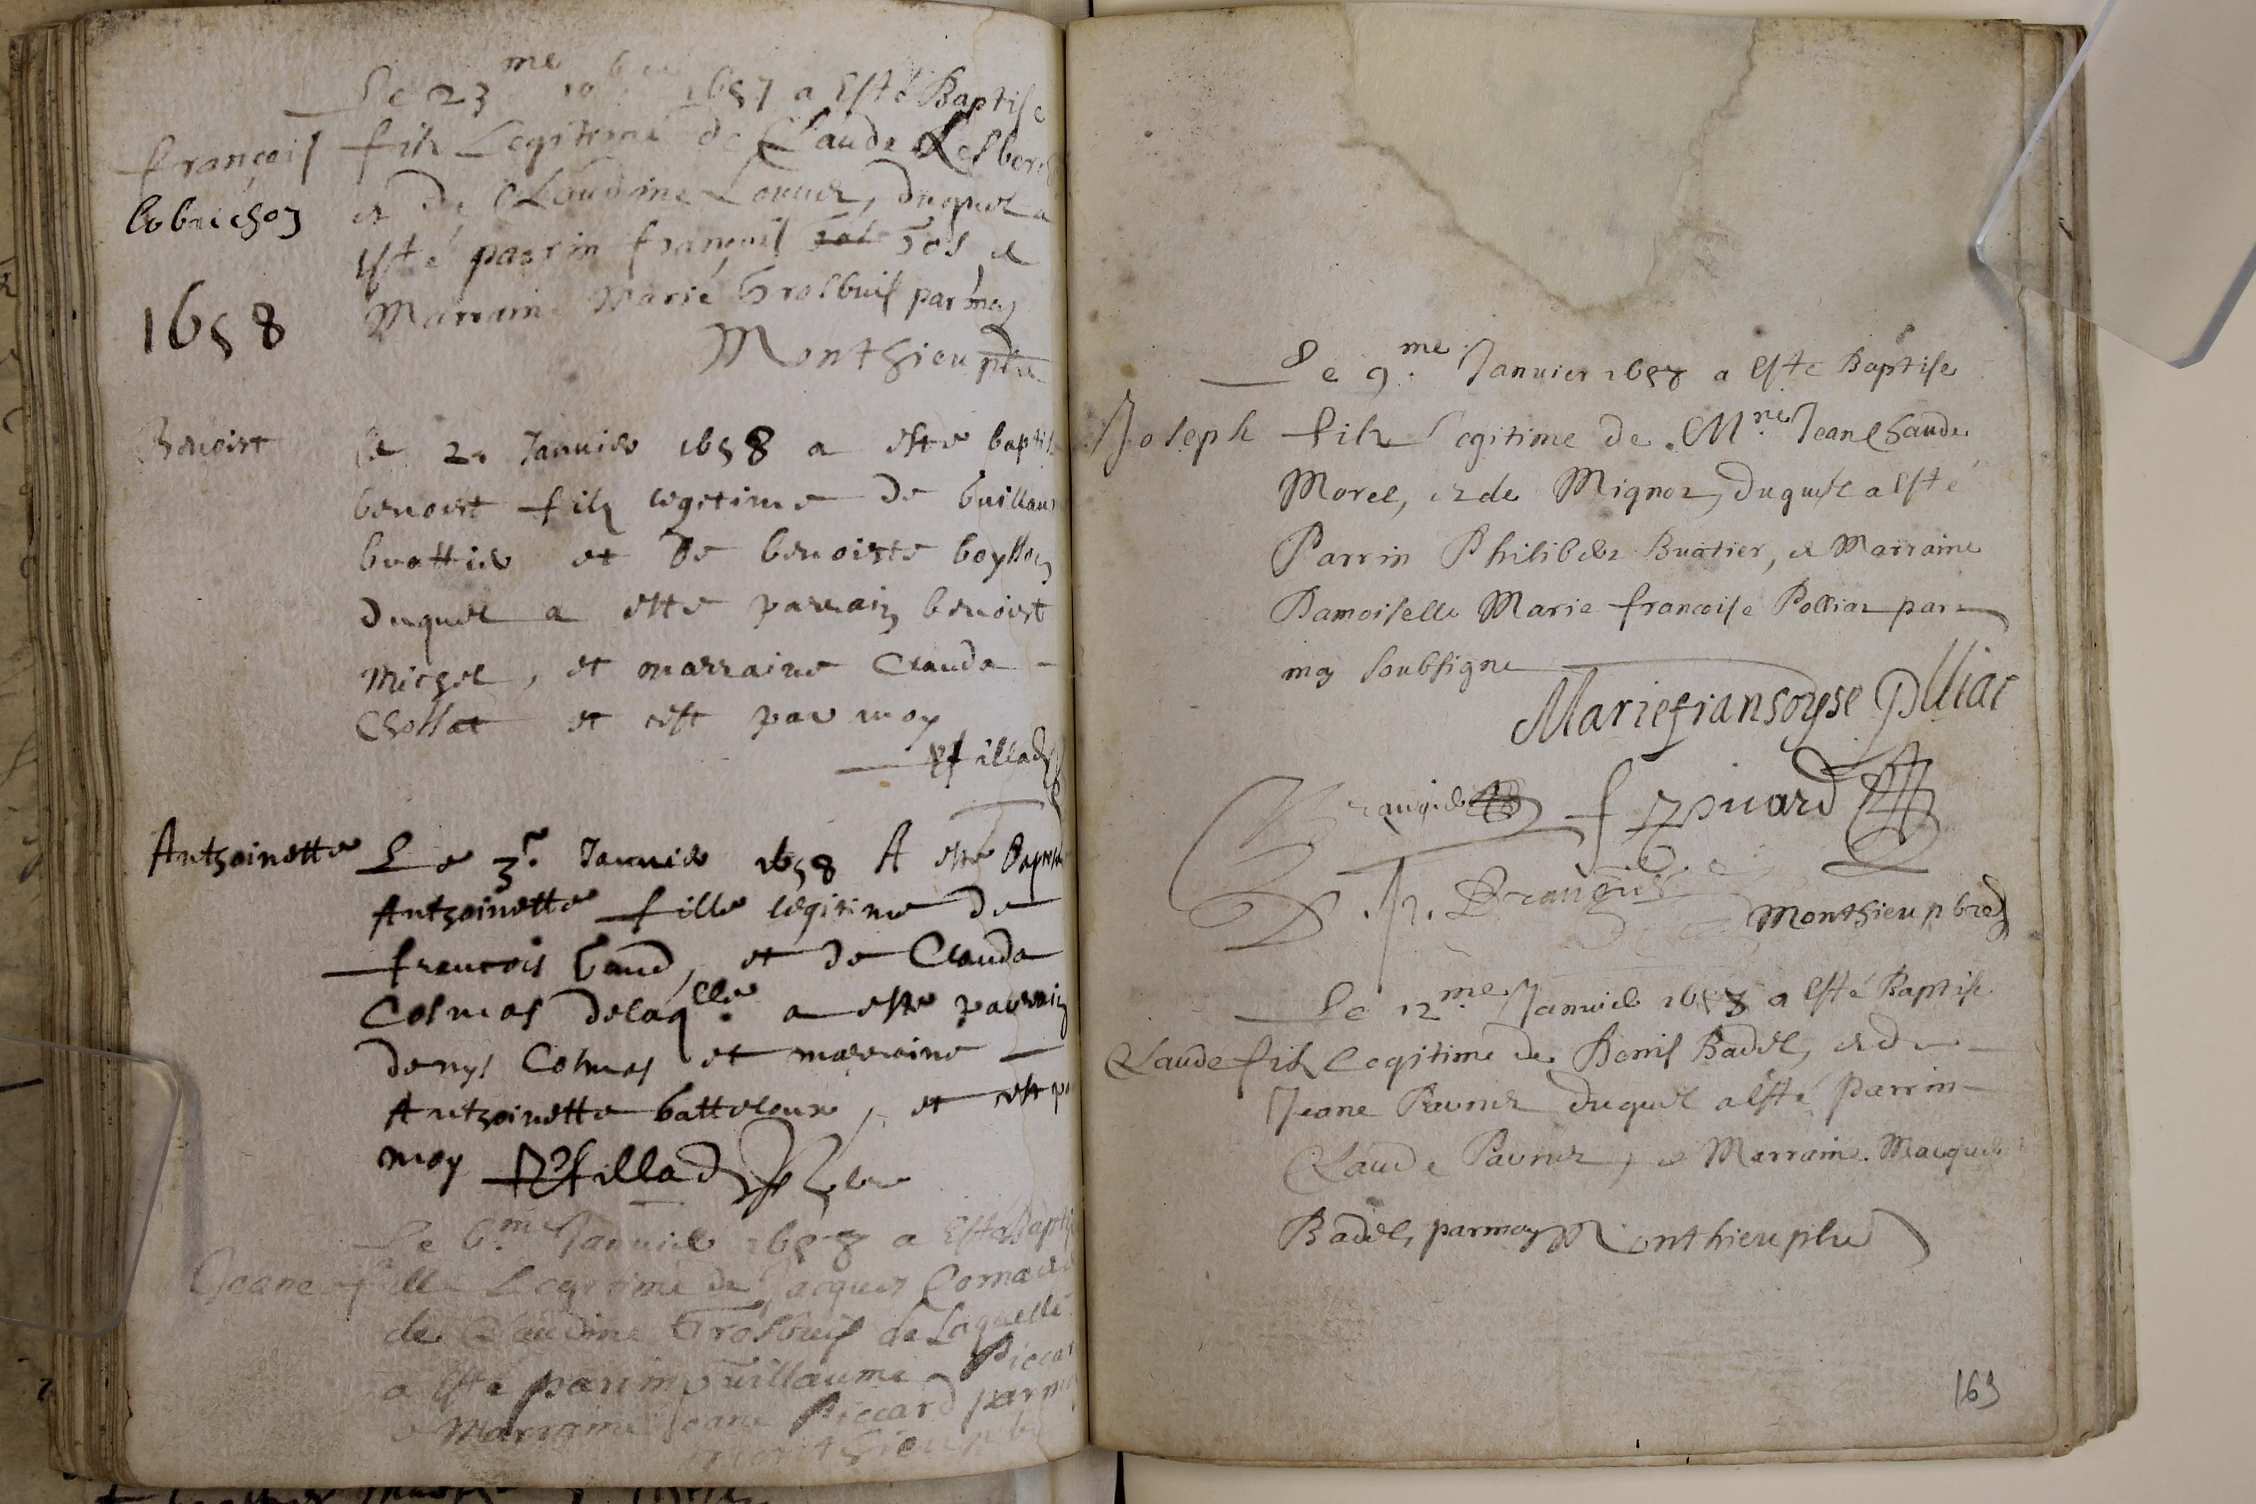 Le 23 me 10 bre 1657 a Esté Baptise
françois filz Legitime de Claude Lesbore
Cobaichon
et de Claudine Louuet, duquel a
esté parrin françois Gos et
1658
Marrain Marie Grosbuis par moy
Monthieu pbre
Benoist
le 2. Januier 1658 a este baptise
benoist filz legitime de Guillau
buattier et de benoiste boysson
duquel a este parrain benoist
Michel, et marraine Clauda
Chollat et cest par moy
Anthoinette
Le 3e. Januier 1658 A este Baptise
Anthoinette fille legitime de
francois Gaud, et de Clauda
Cosmas delaqlle. a este parrain
denys Cosmas et marraine
Anthoinette batteloux, et cest p
moy
Le 6.me Januier 1658 a Esté Bapti
Jeane fille Legitime de Jacques Coma et
de Claudine Grosbuis de Laquelle
a Esté parrin Guillaume Piccar
e Marraine Jeane Piccard par m
Monthieu pb
Le 9.me Januier 1658 a Este Baptise
Joseph filz Legitime de Mre Jean Chaude
Morel, et de Mignot, duquel a Esté
Parrin Philibert Buatier, et Marraine
Damoiselle Marie francoise Polliat par
moy soubsigne
Mariefransoyse Polliat
Monthieu pbre
Le 12.me Januier 1658 a Esté Baptise
Claude filz Legitime de Denis Badel, et de
Jeane Pavout duquel a Esté parrin
Claude Pavout, et Marraine
Badel, par moy Monthieu pbre
163